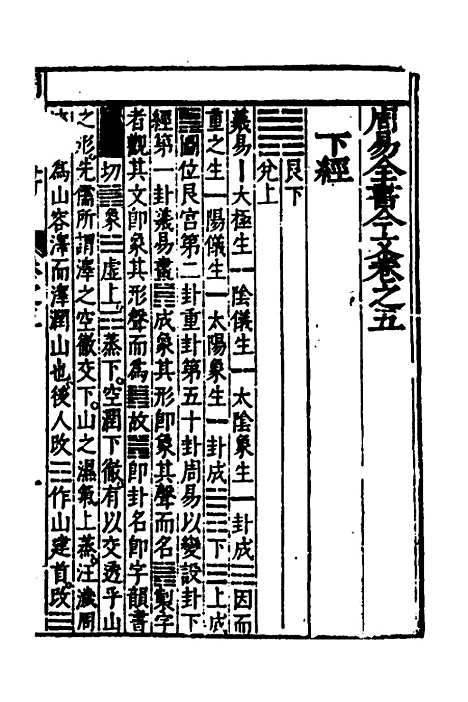 周易全書今文卷之五
下經
䷞艮下
兌上
羲易丨大極生⚋陰儀生⚋太陰象生⚋卦成☶因而
重之生⚊陽儀生⚊太陽象生⚋卦成☱☶下☱上成
䷞圖位艮宮第二卦重卦第五十卦周易以變設卦下
經第一卦羲易畫䷞成象其形卽象其聲而名䷞製字
者觀其文卽象其形聲而爲䷞故䷞卽卦名卽字韻書
切䷞象☱虛上☶蒸下空潤下徹有以交透乎山
之形先儒所謂澤之空徹交下山之濕氣上蒸汪濊周
爲山容澤而澤潤山也後人改☶作山建首改䷞